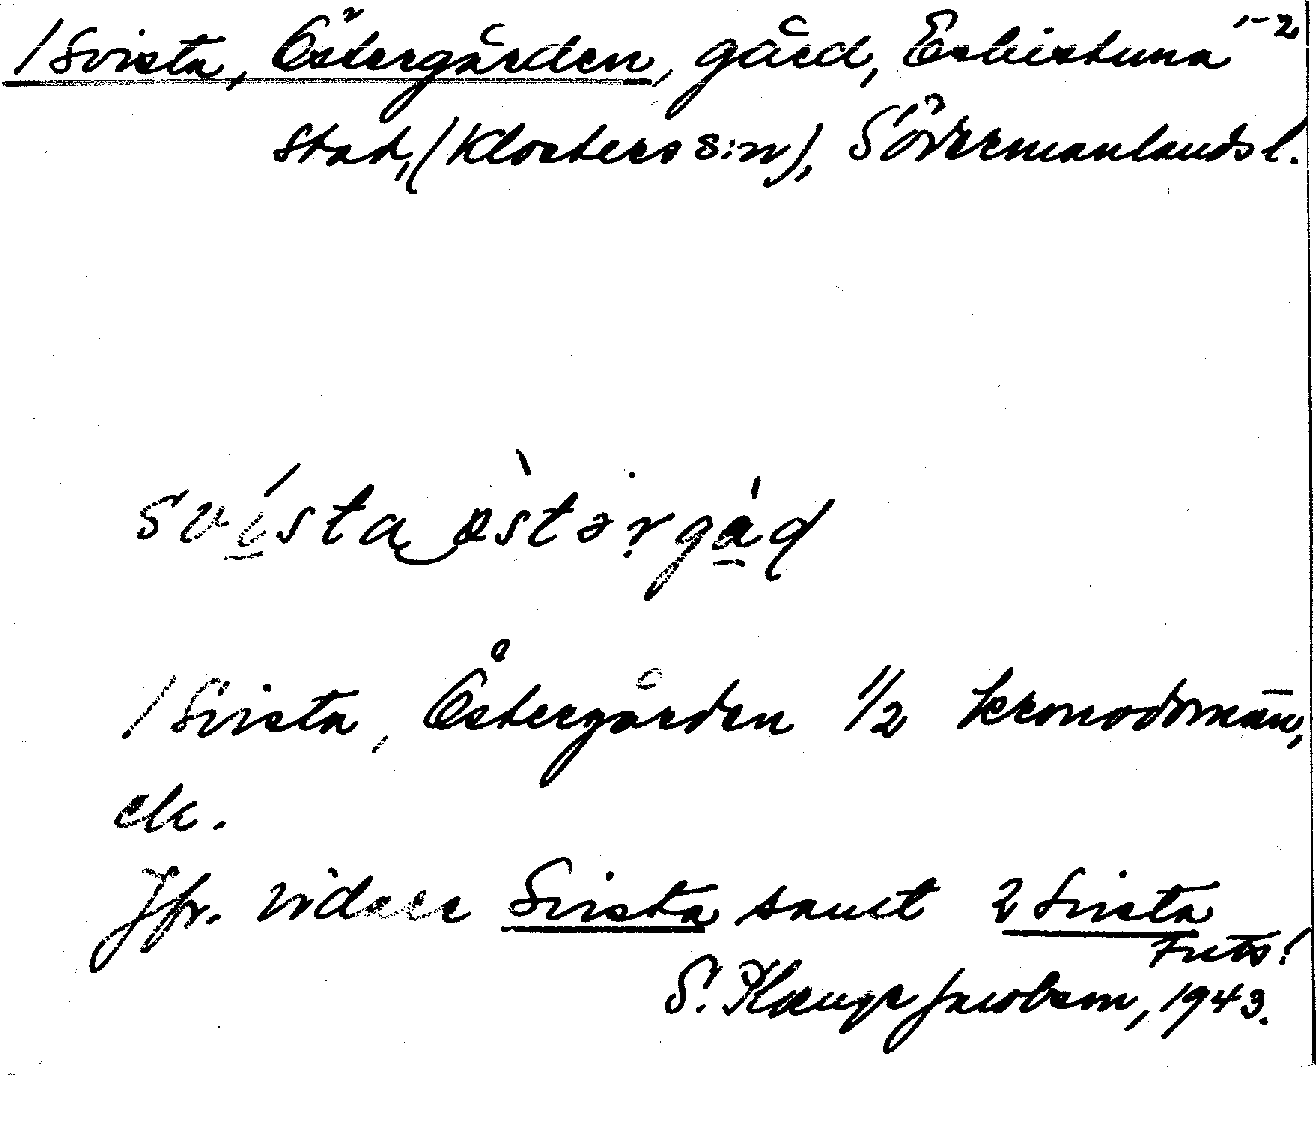 1 Svista, Östergården, gård, Eskilstuna 1-2
stad, (Klosters s:n), Södermanlands l.
svista östərgåd
1 Svista, Östergården 1/2 kronodomän,
etc.
Jfr. vidare Svista samt 2 Svista
Forts!
S. Plænge Jacobson, 1943.